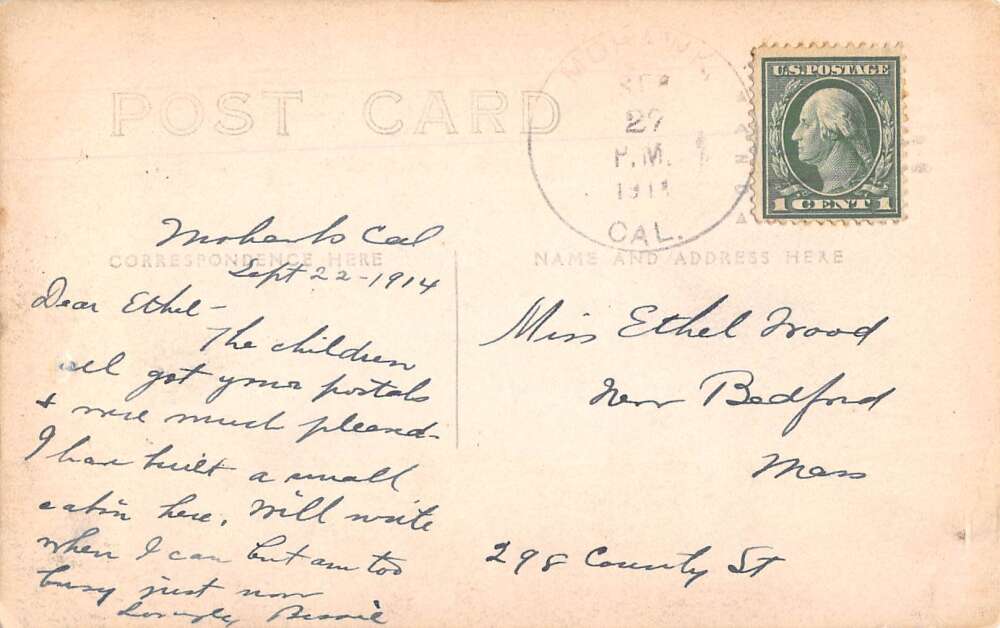 POST CARD
MOHAWK
SEP
27
P.M.
1914
CAL.
U.S. POSTAGE
1 CENT 1
CORRESPONDENCE HERE
NAME AND ADDRESS HERE
Mohawk Cal
Sept 22-1914
Dear Ethel-
The children
all got your postals
& were much pleased-
I have built a small
cabin here. Will write
when I can but am too
busy just now
Lovingly Bessie
Miss Ethel Wood
New Bedford
Mass
298 County St